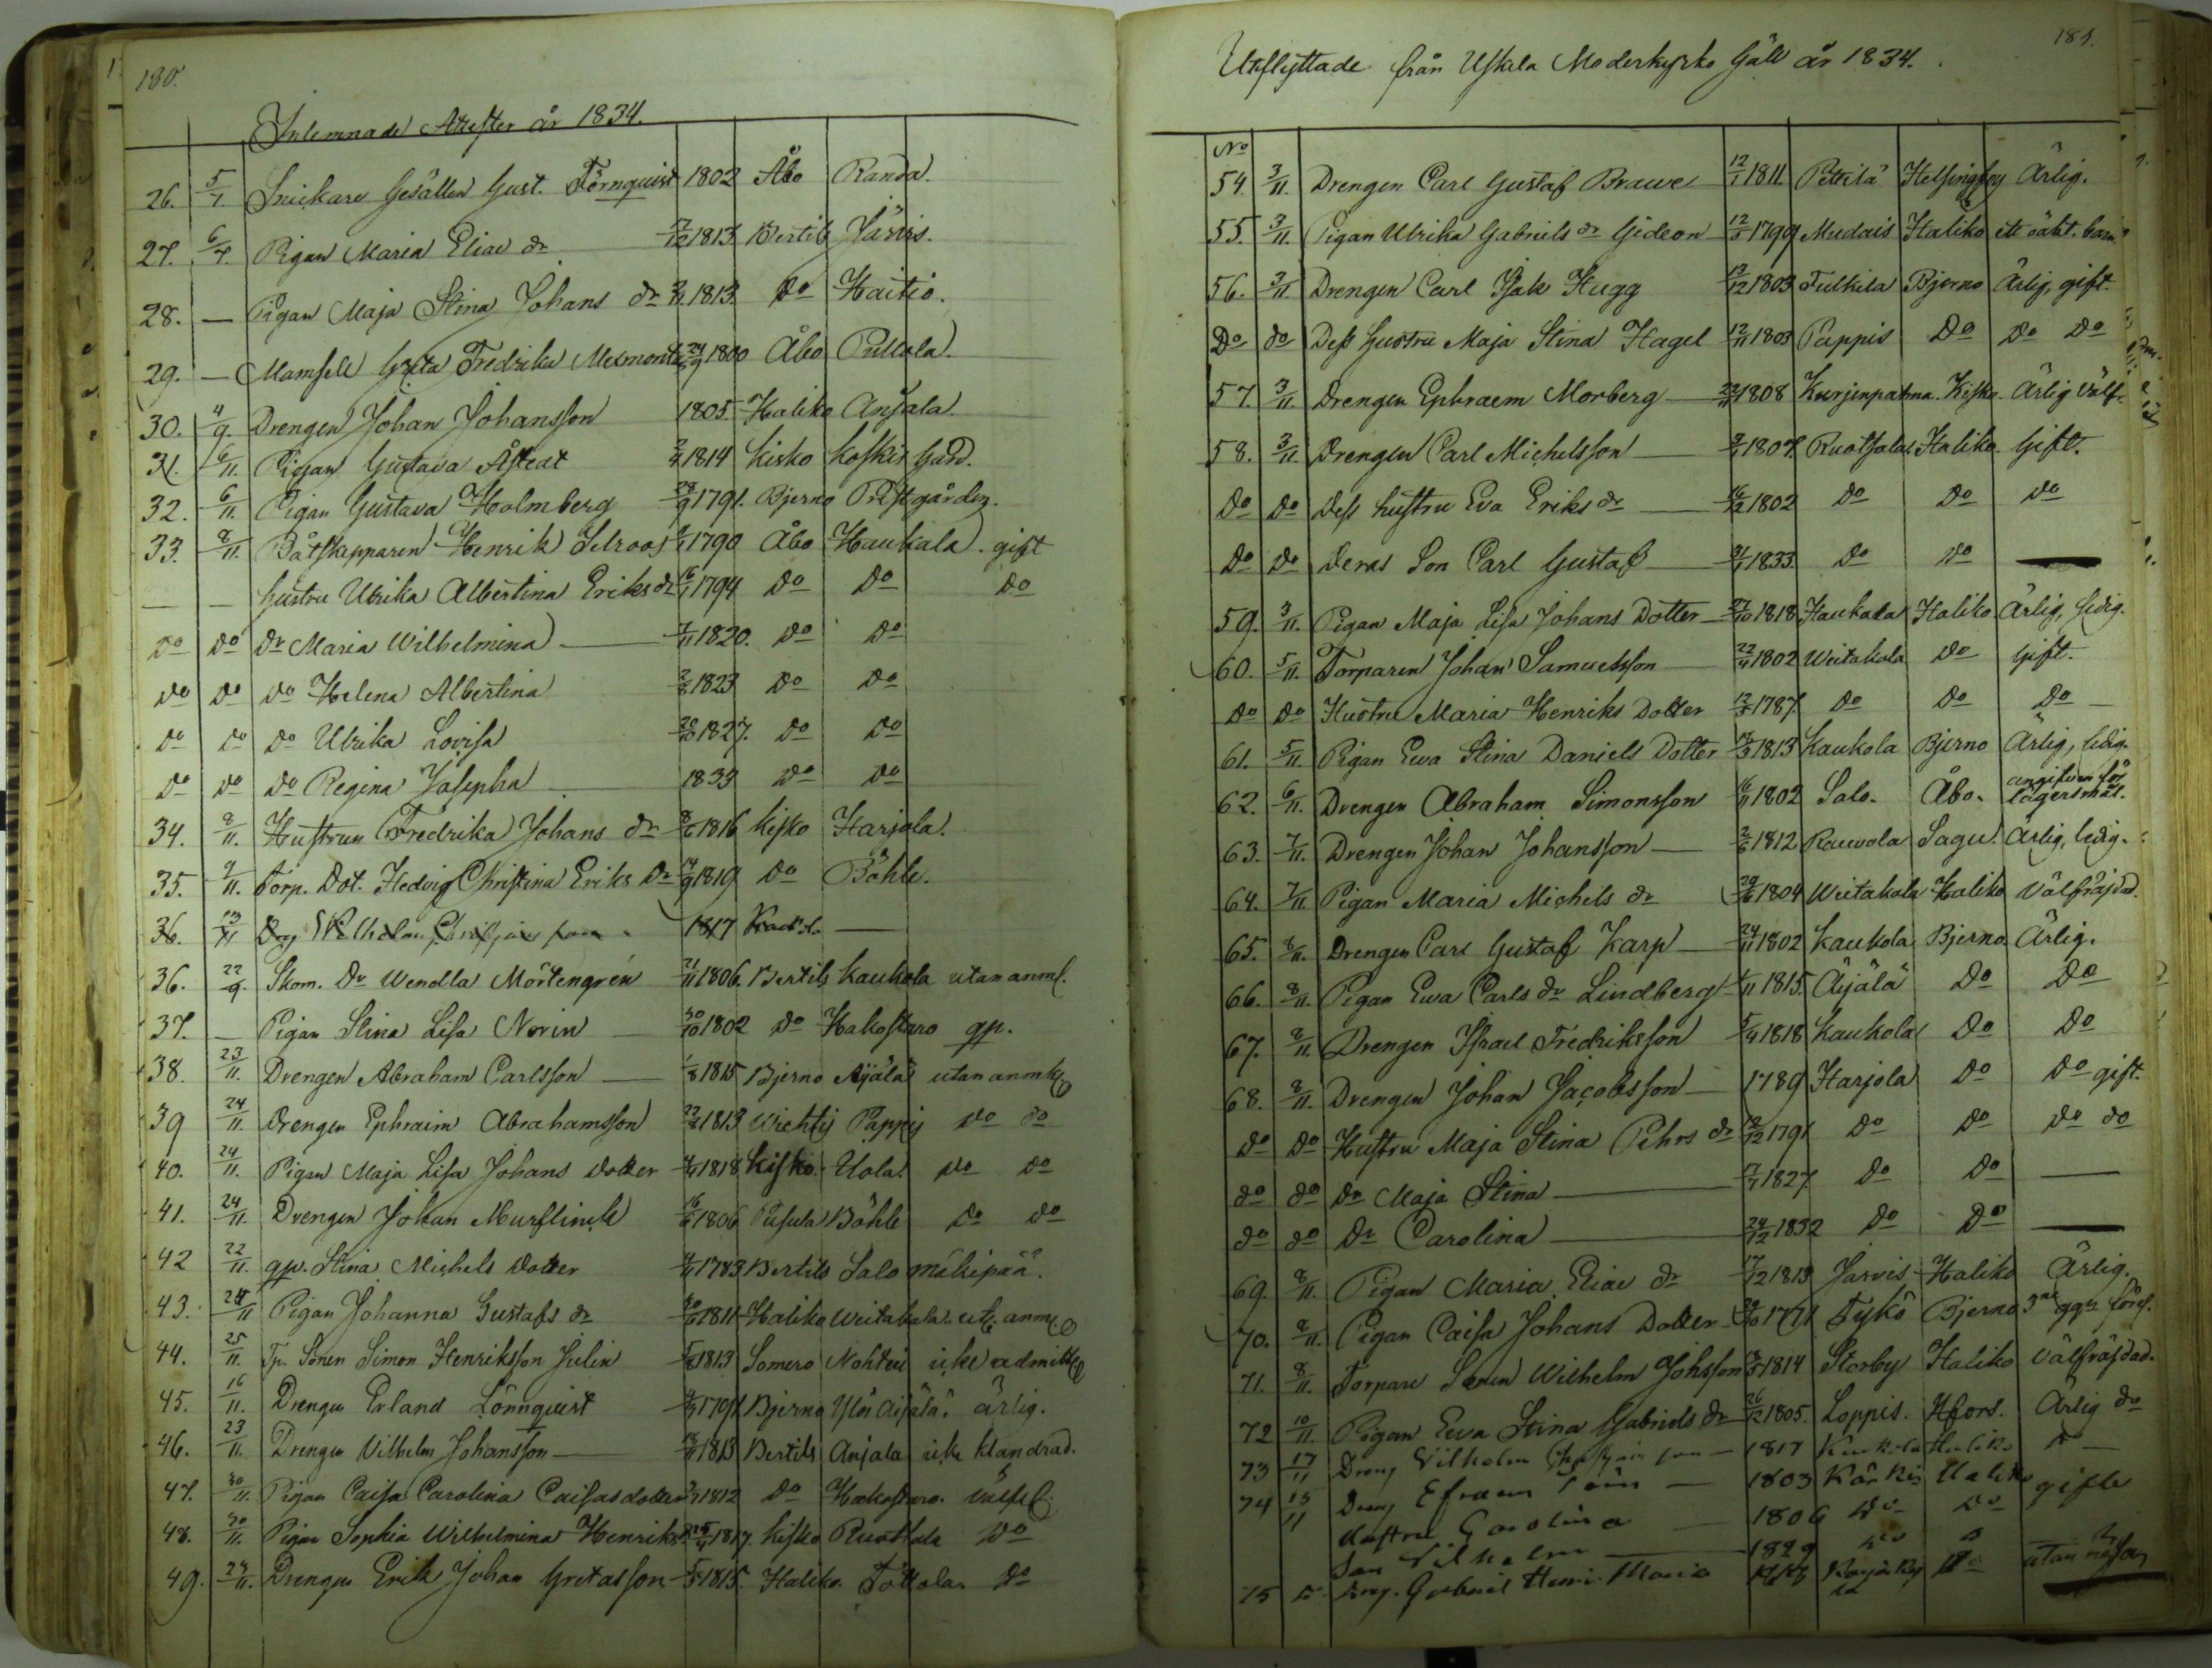 180.
Inlemnade Attester år 1834.
26. 5/1. Snickare Gesällen Gust. Törnquist 1802 Åbo Randa.
27. 6/4. Pigan Maria Elias dr 17/12 1813 Bertils Järvis.
28. — Pigan Maja Stina Johans dr 1813 Do Haitio.
29. — Mamsell Greta Fredrika 24/9 1800 Åbo Pullola.
30. 4/9. Drengen Johan Johansson 1805 Haliko Anjala.
31. 6/11. Pigan Gustava Åstedt 1814 Kisko Koskis Gård.
32. 6/11. Pigan Gustava Holmberg 28/9 1791. Bjerno Prestgården.
33. 8/11. Båtskepparen Henrik Selroos 1790 Åbo Haukala. gift
— — Hustru Ulrika Albertina Eriks dr 16/1 1794 Do Do Do
Do Do Dr Maria Wilhelmina — 7/11 1820. Do Do
Do Do Do Helena Albertina 2/8 1823 Do Do
Do Do Do Ulrika Lovisa 20/10 1827. Do Do
Do Do Do Regina Josepha 1833 Do Do
34. 8/11. Hustrun Fredrika Johans dr 1816 Kisko Harjola.
35. 9/11. Torp. Dot. Hedvig Christina Eriks Dr 14/9 1819 Do Böhle.
36. 13/11 Drg Wilhelm 1817 —
36. 22/9. Skom. Dr Wendla Mörtengrén 21/11 1806. Bertils Kaukola utan anml.
37. — Pigan Stina Lisa Norin — 30/10 1802 Do Hakostaro qp.
38. 23/11. Drengen Abraham Carlsson — 1/8 1815 Bjerno Äijälä utan anmkg
39 24/11. Drengen Ephraim Abrahamsson 1813 Wichtis Pappis Do Do
40. 24/11. Pigan Maja Lisa Johans Dotter 1818 Kisko. Uola. Do Do
41. 24/11. Drengen Johan Murflinck 16/6 1806 Pusula Böhle Do Do
42 22/11. qp. Stina Michels Dotter 1783 Bertils Salo mökipää.
43. 24/11 Pigan Johanna Gustafs dr 1811 Haliko Weitakala. ut. anmkg
44. 25/11. Tp. Sonen Simon Henriksson Julin 1813 Somero Nohteri icke admitt.
45. 16/11. Drengen Erland Lönnquist 1791 Bjerno Ylös Äijälä. ärlig.
46. 23/11. Drengen Vilhelm Johansson — 1813 Bertils Anjala icke klandrad.
47. 30/11. Pigan Caisa Carolina Caisasdotter 1812 Do Hakostaro. välfr.
48. 30/11. Pigan Sophia Wilhelmina Henriks dr 1817. Kisko Ruotsala Do
49. 24/11. Drengen Erik Johan Gretasson 1815. Haliko. Tottola. Do
181.
Utflyttade från Uskela Moderkyrko Gäll år 1834.
No
54. 3/11. Drengen Carl Gustaf Brawe — 12/1 1811. Pettilä Helsingfors Ärlig.
55. 3/11. Pigan Ulrika Gabriels dr Gideon — 12/8 1799 Mudais Haliko ett oäkt. barn.
56. 3/11. Drengen Carl Isak Hugg 13/12 1803 Tulkila Bjerno Ärlig, gift.
Do do Dess Hustru Maja Stina Hagel 12/11 1803 Pappis Do Do Do
57. 3/11. Drengen Ephraem Morberg — 1808 Kurjenpahna. Kisko. Ärlig välfr.
58. 3/11. Drengen Carl Michelsson — 1807. Ruotsala. Haliko. Gift.
Do Do Dess hustru Eva Eriks dr — 16/12 1802 Do Do Do
Do Do Deras Son Carl Gustaf — 31/1 1833. Do Do —
59. 3/11. Pigan Maja Lisa Johans Dotter — 27/10 1818 Haukala Haliko Ärlig, ledig.
60. 5/11. Torparen Johan Samuelsson — 1802 Weitakala Do Gift.
Do Do Hustru Maria Henriks Dotter 12/3 1787. Do Do Do —
61. 5/11. Pigan Ewa Stina Daniels Dotter 1813 Kaukola Bjerno Ärlig, ledig.
62. 6/11. Drengen Abraham Simonsson 16/11 1802 Salo. Åbo. angifven för lägersmål.
63. 7/11. Drengen Johan Johansson — 2/6 1812 Rauvola Sagu. Ärlig, ledig.
64. 7/11. Pigan Maria Michels dr 1804 Weitakala Haliko Välfräjdad.
65. 8/11. Drengen Carl Gustaf Karp — 24/11 1802 Kaukola Bjerno Ärlig.
66. 8/11. Pigan Ewa Carls dr Lindberg 1815. Äijälä Do Do
67. 8/11. Drengen Israel Fredriksson 5/4 1818 Kaukola Do Do
68. 8/11. Drengen Johan Jacobsson — 1789 Harjola Do Do gift.
Do Do Hustru Maja Stina Pehrs dr 12/12 1791 Do Do Do do
do do Dr Maja Stina — 17/1 1827. Do Do —
do do Dr Carolina — 24/12 1832 Do Do —
69. 8/11. Pigan Maria Elias dr 17/12 1813 Jarvis Haliko Ärlig.
70. 8/11. Pigan Caisa Johans Dotter — 1771 Tykö Bjerno 3ne ggr förs.
71. 8/11. Torpare Sonen Wilhelm Johsson 1814 Storby Haliko välfräjdad.
72 10/11 Pigan Ewa Stina Gabriels dr 26/12 1805. Loppis. Hfors. Ärlig do
73 17/11 Dreng Vilhelm — 1817 Haliko Do —
74 15/11 Dreng Efraem — 1803 Kärkis Haliko gifte
Hustru Carolina — 1806 Do Do
Son Vilhelm — 1829 Do
75 Drng. Gabriel Do utan